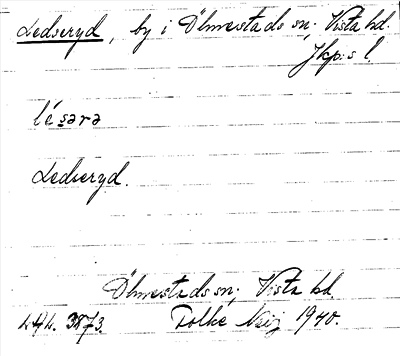 Ledseryd, by i Ölmestads sn; Vista hd.
Jkp:s l.
lésərə
Ledseryd.
Ölmestads sn; Vista hd.
3873. Folke 1940.